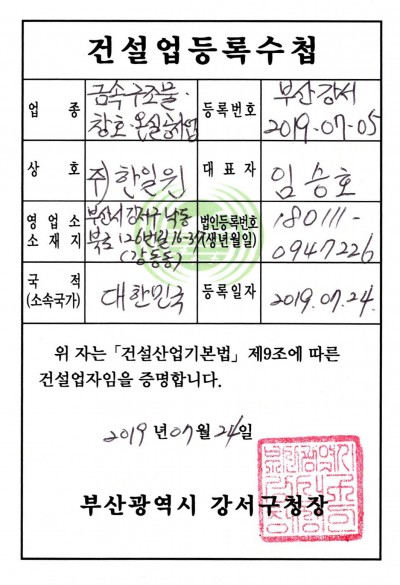 건설업등록수첩
업 종
금속구조물·
창호·온실공사업
등록번호
부산강서
2019-07-05
상 호
㈜한일윈
대 표 자
임승호
영 업 소
소 재 지
부산시 강서구 낙동
북로 126번길 16-37
(강동동)
법인등록번호
(생년월일)
180111-
0947226
국 적
(소속국가)
대한민국
등록일자
2019.07.24.
위 자는 「건설산업기본법」 제9조에 따른
건설업자임을 증명합니다.
2019 년 07 월 24 일
부산광역시 강서구청장